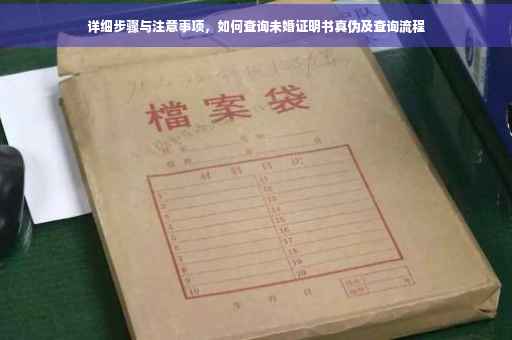 详细步骤与注意事项，如何查询未婚证明书真伪及查询流程
檔案袋
材料目次
1 11
2 12
3 13
4 14
5 15
6 16
7 17
8 18
9 19
10 20
年 月 日